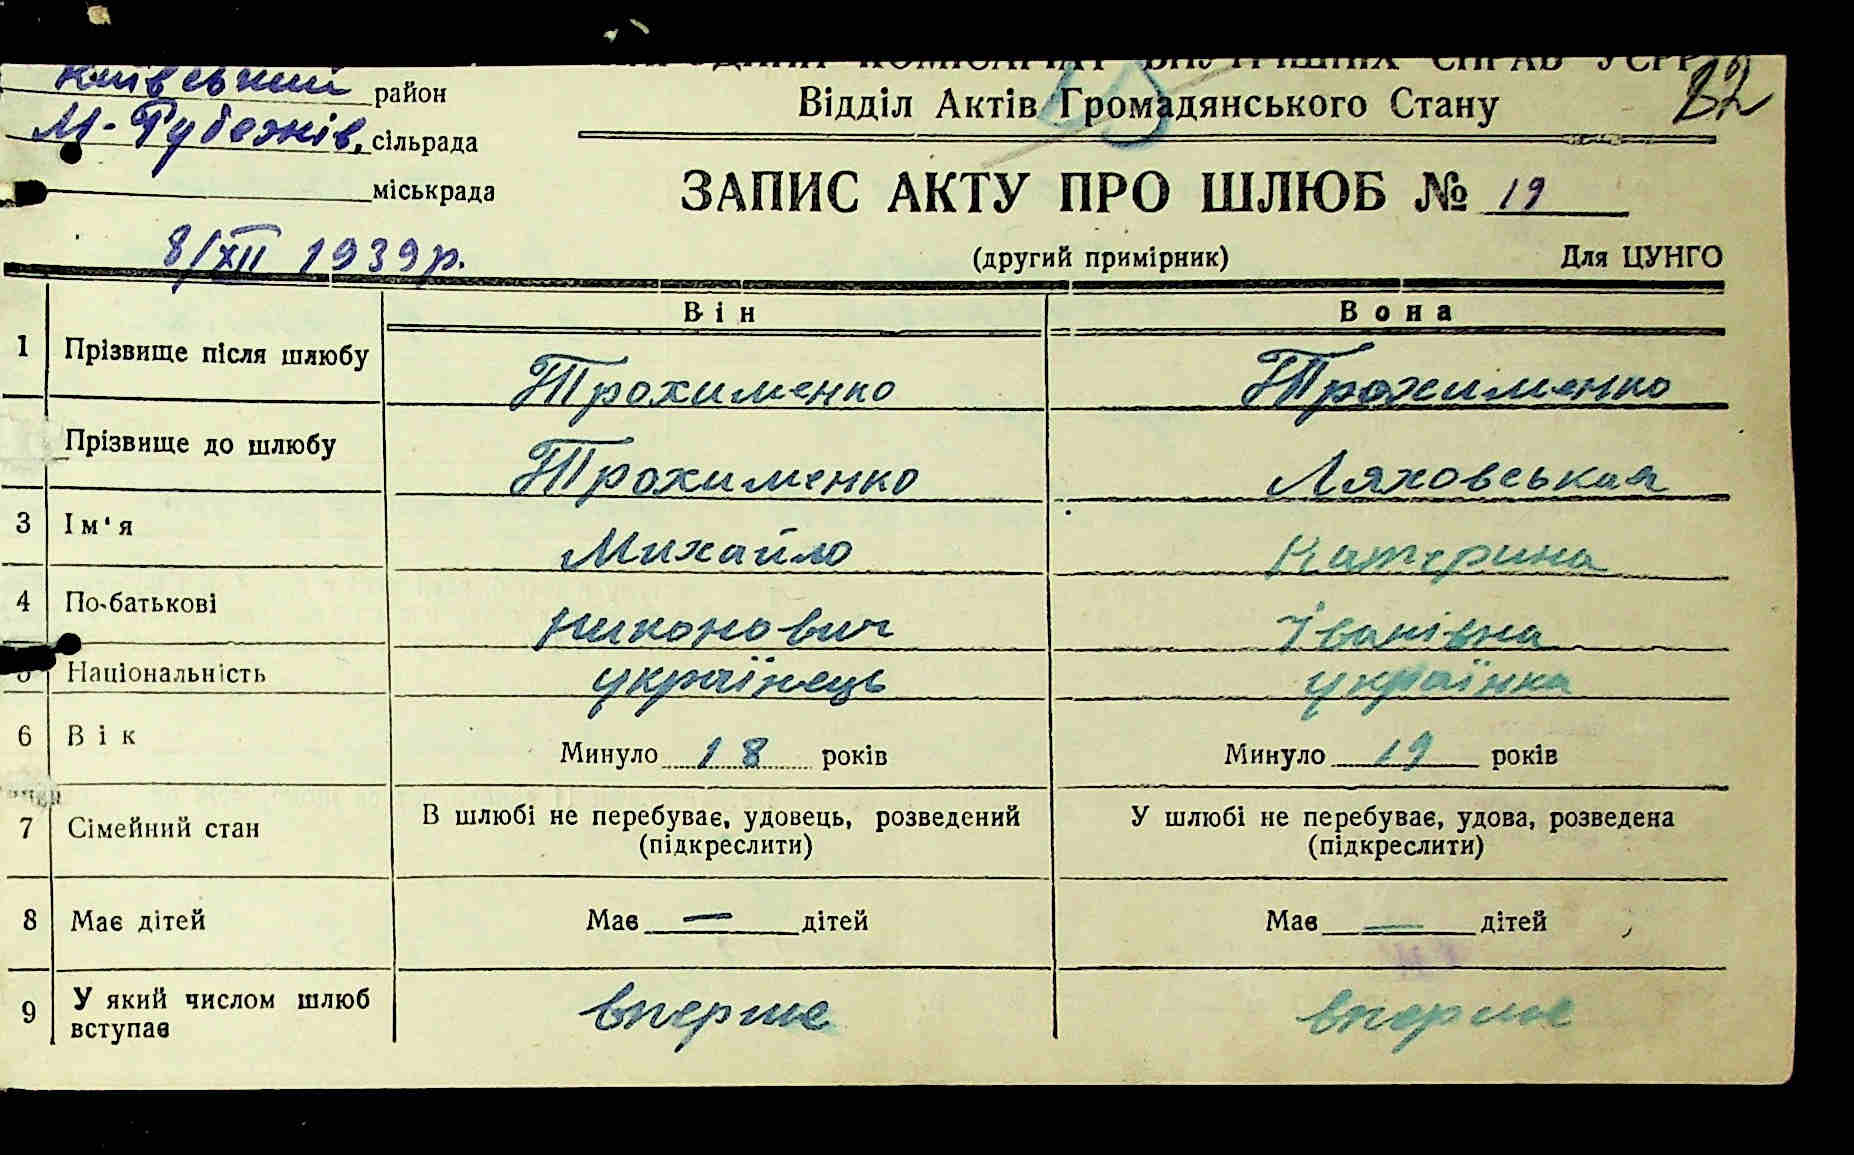 НАРОДНИЙ КОМІСАРІАТ ВНУТРІШНІХ СПРАВ УСРР
Київський район
Відділ Актів Громадянського Стану
82
М-Рубежнів. сільрада
міськрада
ЗАПИС АКТУ ПРО ШЛЮБ № 19
8/XII 1939 р.
(другий примірник) Для ЦУНГО
Він Вона
1 Прізвище після шлюбу Трохименко Трохименко
Прізвище до шлюбу Трохименко Ляховськая
3 Ім'я Михайло Катерина
4 По-батькові Никонович Іванівна
5 Національність українець українка
6 Вік Минуло 18 років Минуло 19 років
7 Сімейний стан В шлюбі не перебуває, удовець, розведений У шлюбі не перебуває, удова, розведена
(підкреслити) (підкреслити)
8 Має дітей Має — дітей Має — дітей
9 У який числом шлюб вступає вперше вперше